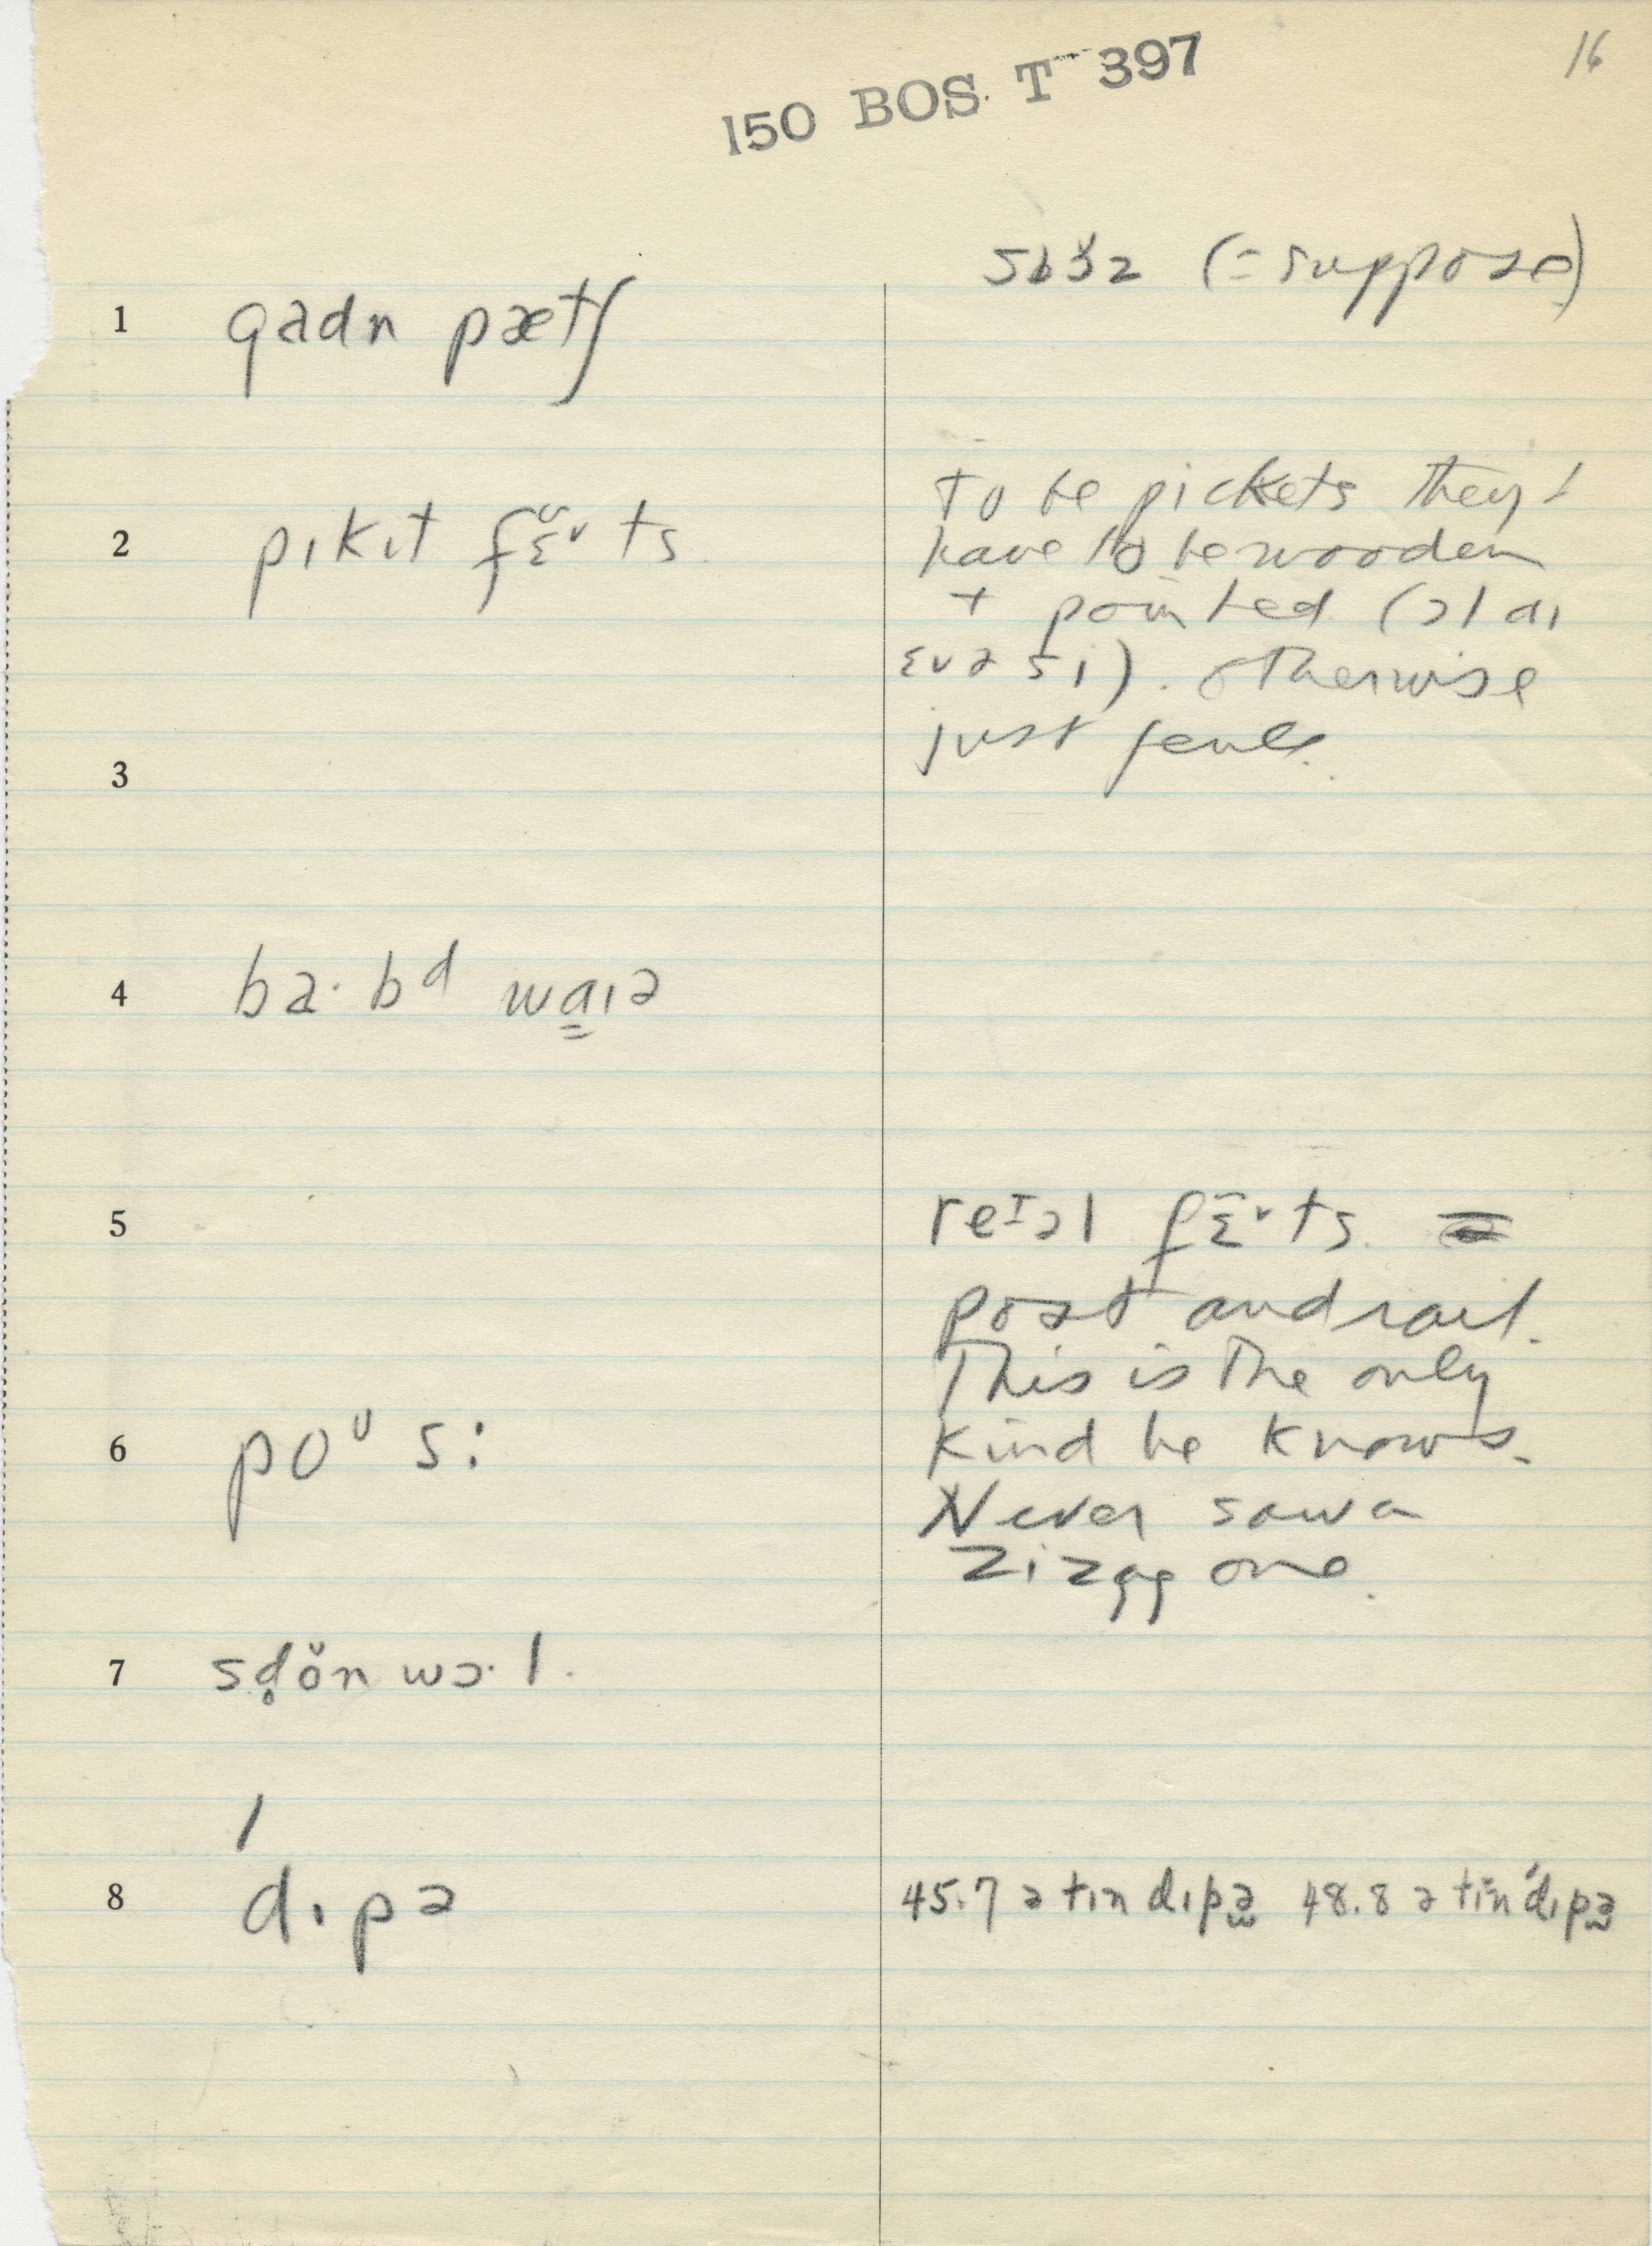 16
150 BOS. T 397
sbɜ̆z (= suppose)
1 gadn pætʃ
2 pɪkɪt fɛ̆ⁿts
To be pickets they'
have to be wooden
+ pointed (ɔl aɪ
ɛvə si). otherwise
just fence.
3
4 ba·bᵈ wa̳ɪə
5 reᴵəl fɛ̃ⁿts.
post and rail.
This is the only
kind he knows.
Never saw a
zizag one.
6 poᵘ s:
7 sd̥ŏn wɔ·l.
8 dɪpə
45.7 ə tɪn dɪpə 48.8 ə tɪn ˈdɪpə